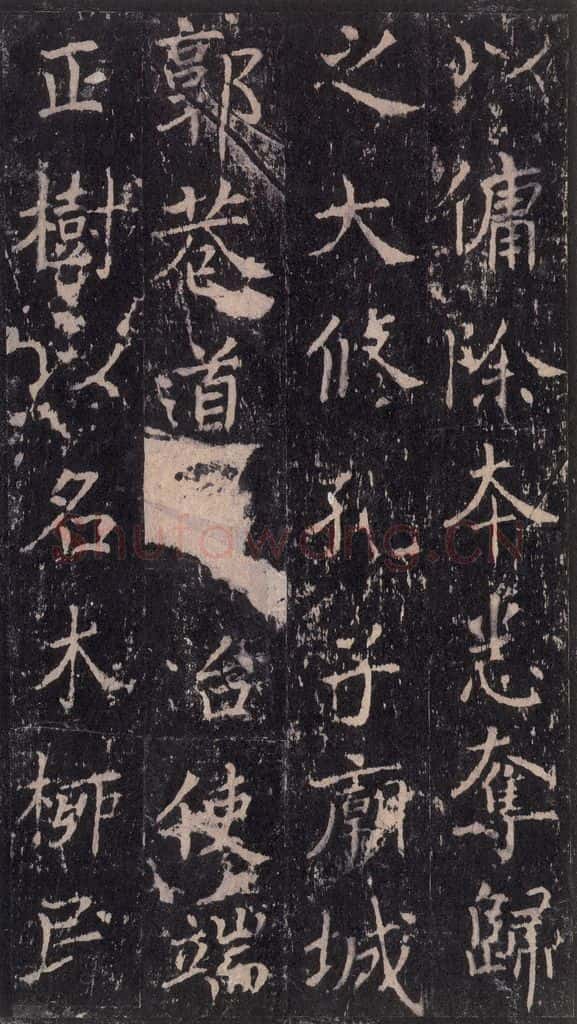 以傭除本悉奪歸
之大修孔子廟城
郭巷道
台使端
正樹以名木柳民
Shufawang.CN